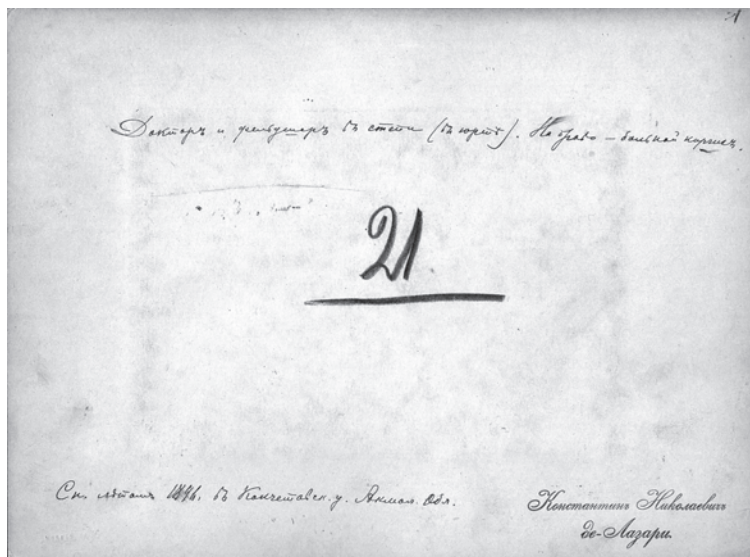 1
Докторъ и фельдшеръ въ степи (въ юртѣ). Направо – больной киргизъ.
21.
Сн. лѣтомъ 1896. въ Кокчетавск. у. Акмол. Обл.
Константинъ Николаевичъ
де-Лазари.